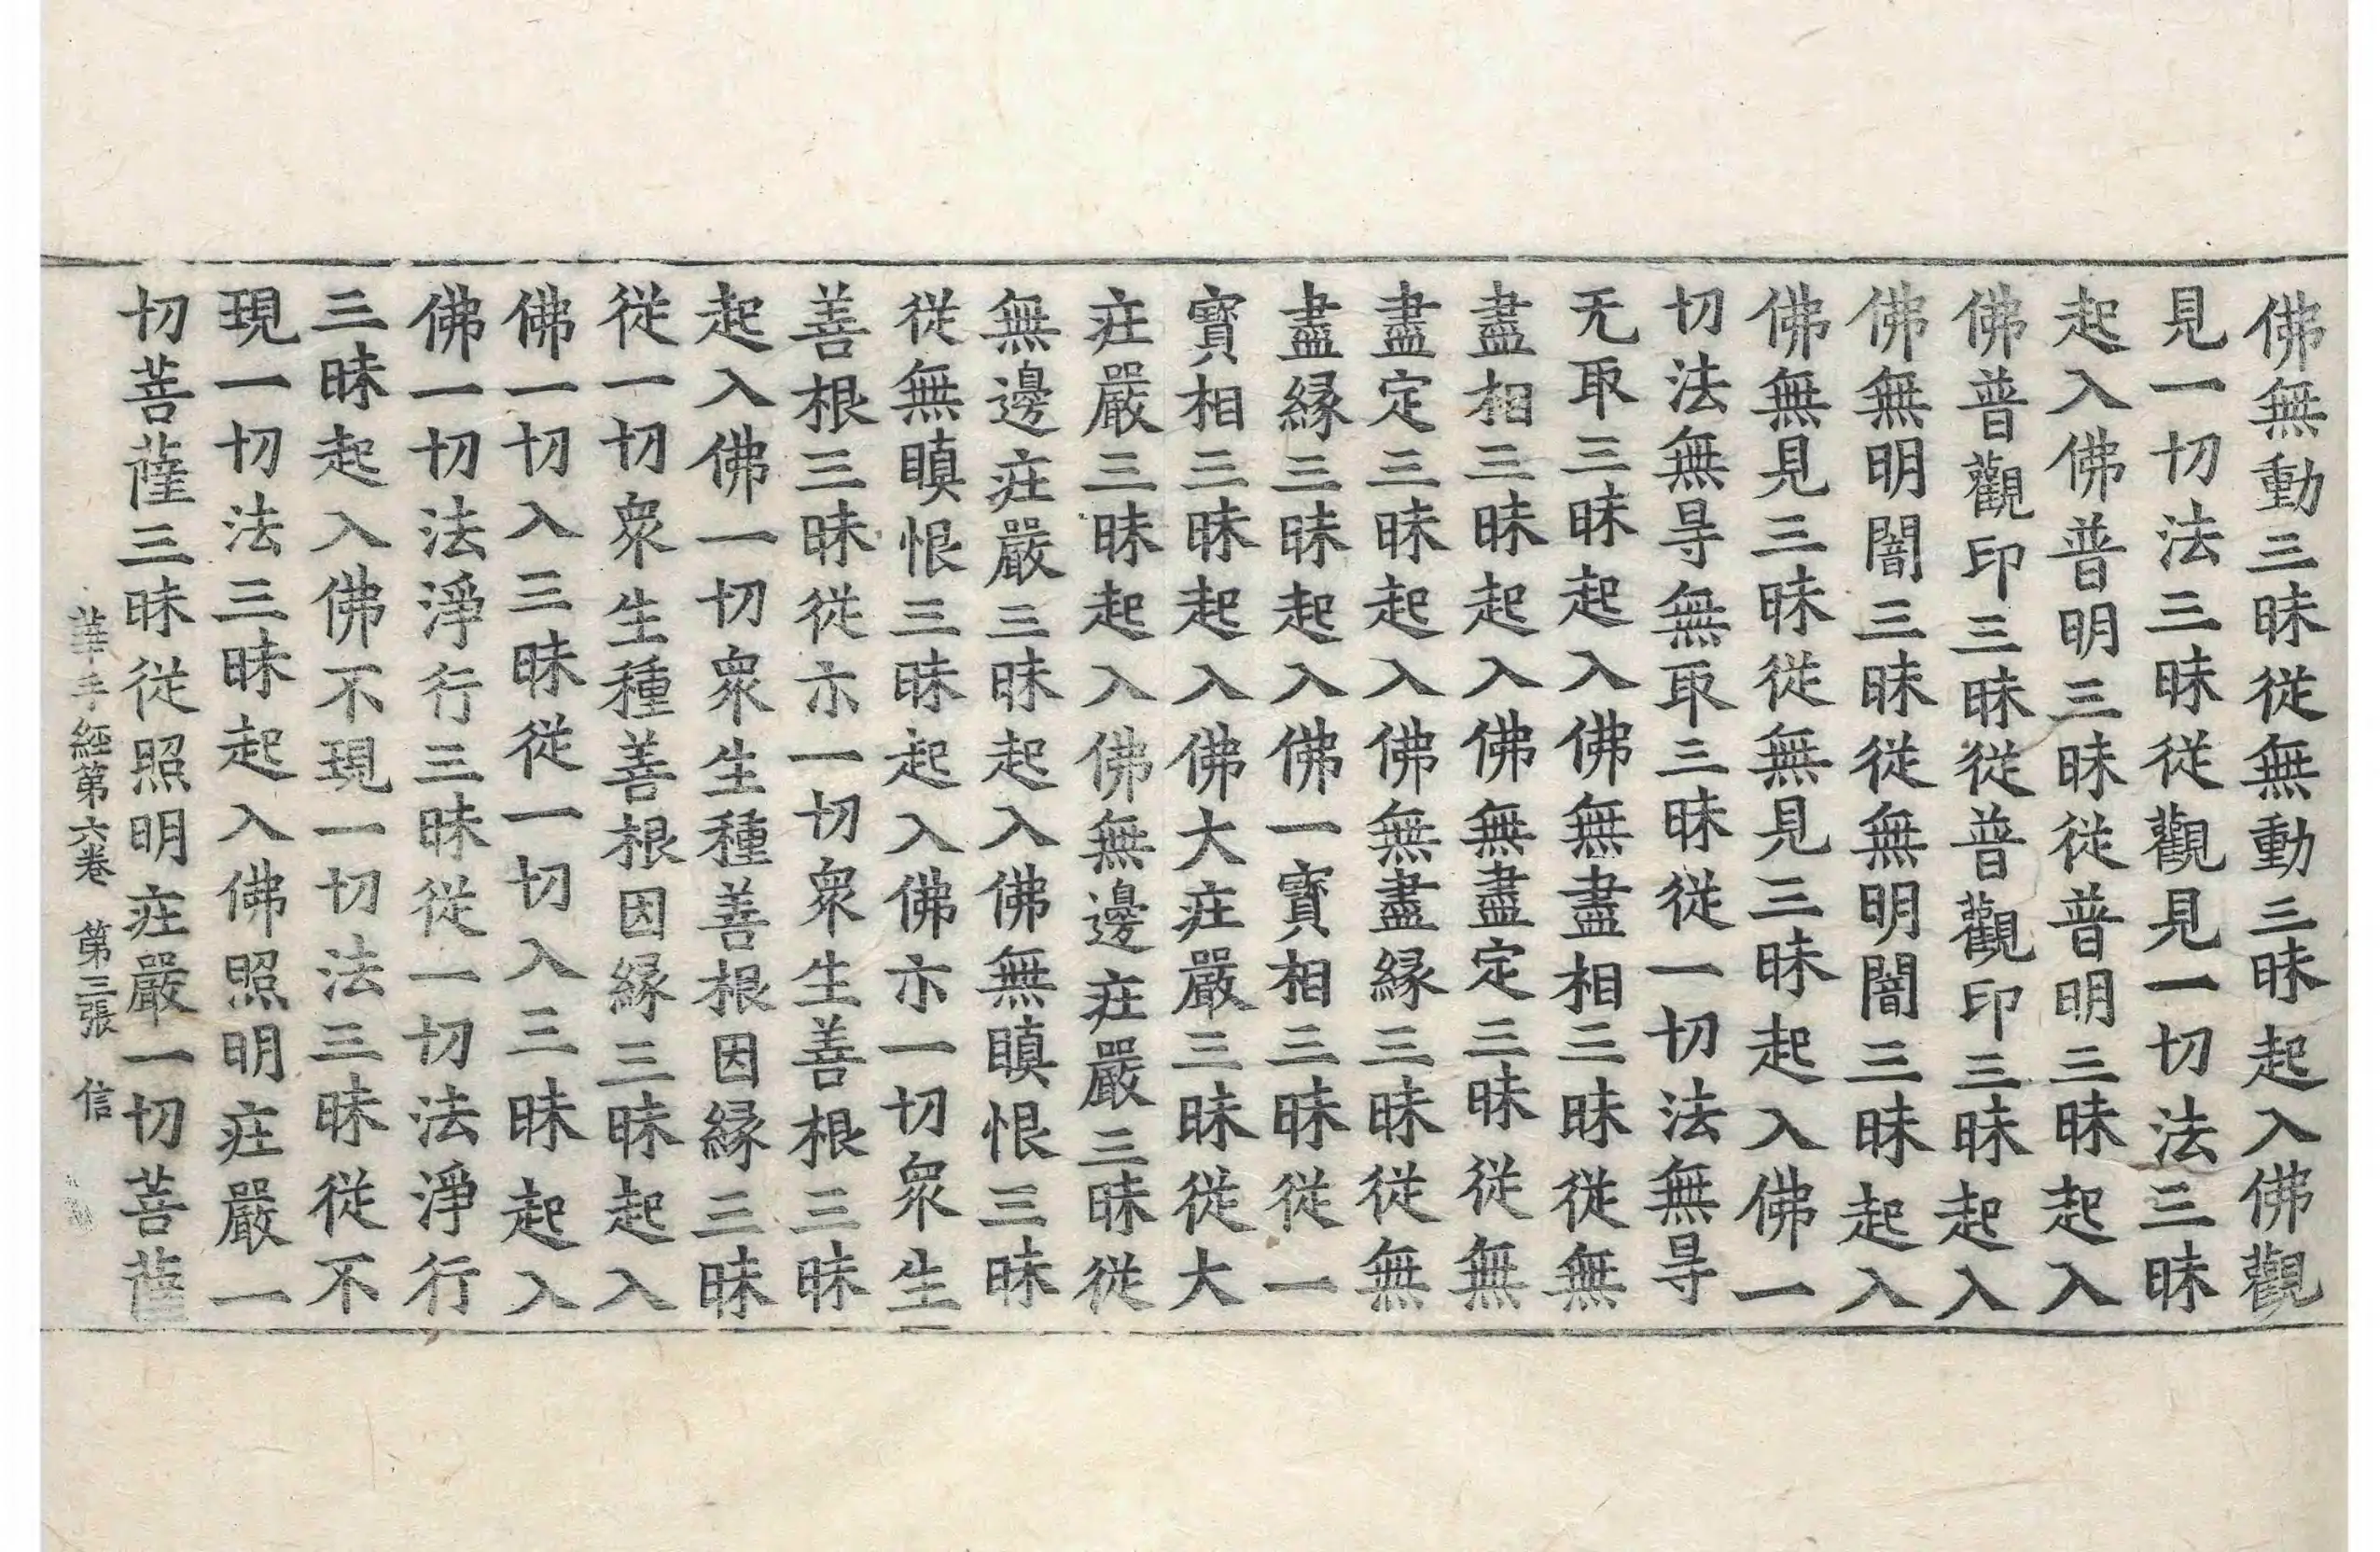 佛無動三昧從無動三昧起入佛觀
見一切法三昧從觀見一切法三昧
起入佛普明三昧從普明三昧起入
佛普觀印三昧從普觀印三昧起入
佛無明闇三昧從無明闇三昧起入
佛無見三昧從無見三昧起入佛一
切法無㝵無取三昧從一切法無㝵
无取三昧起入佛無盡相三昧從無
盡相三昧起入佛無盡定三昧從無
盡定三昧起入佛無盡緣三昧從無
盡緣三昧起入佛一寶相三昧從一
寶相三昧起入佛大庄嚴三昧從大
庄嚴三昧起入佛無邊庄嚴三昧從
無邊庄嚴三昧起入佛無瞋恨三昧
從無瞋恨三昧起入佛示一切衆生
善根三昧從示一切衆生善根三昧
起入佛一切衆生種善根因緣三昧
從一切衆生種善根因緣三昧起入
佛一切入三昧從一切入三昧起入
佛一切法淨行三昧從一切法淨行
三昧起入佛不現一切法三昧從不
現一切法三昧起入佛照明庄嚴一
切菩薩三昧從照明庄嚴一切菩薩
華手經第六卷 第三張 信